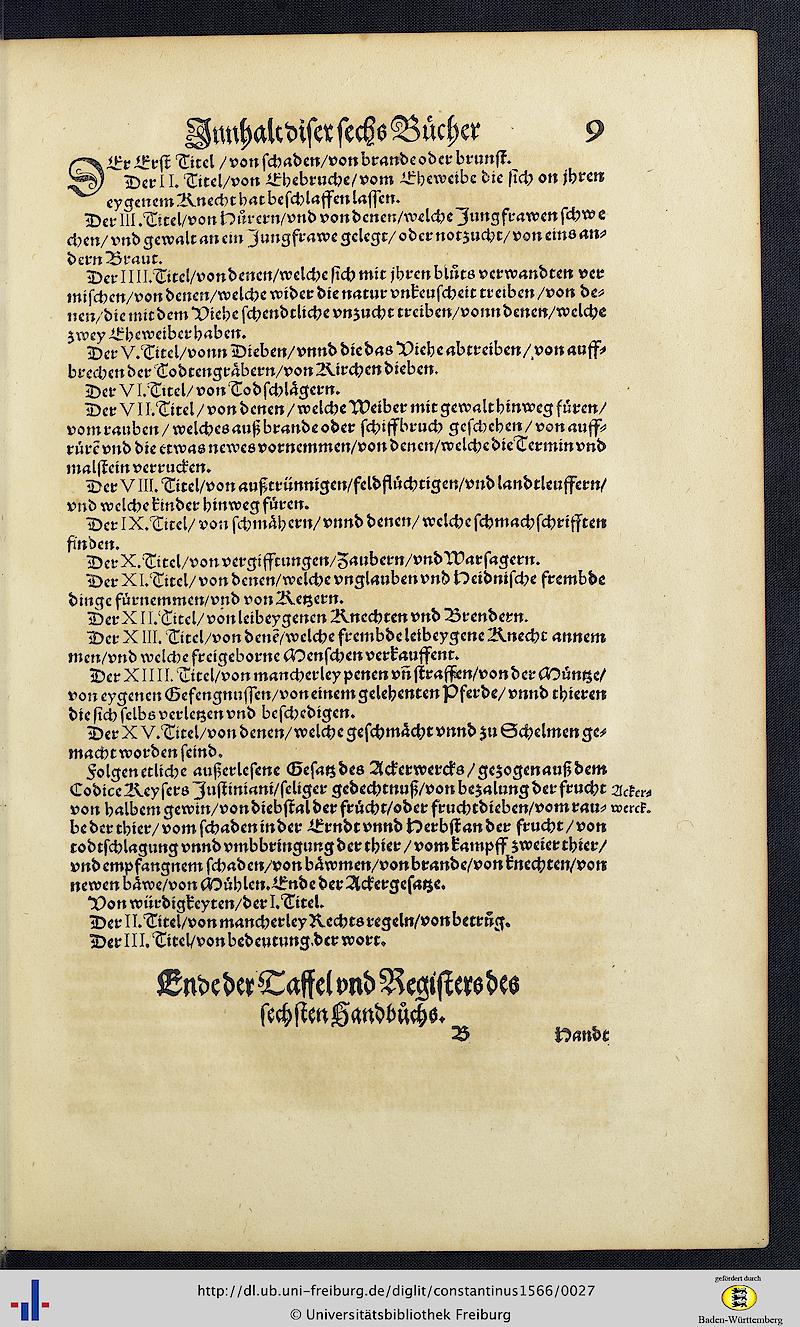 Innhalt diser sechs Bücher 9
DEr Erst Titel / von schaden/von brande oder brunst.
Der II. Titel/von Ehebruche/vom Eheweibe die sich on jhren
eygenem Knecht hat beschlaffen lassen.
Der III. Titel/von Hůrern/vnd von denen/welche Jungfrawen schwe
chen/ vnd gewalt an ein Jungfrawe gelegt/ oder notzucht/von eins an⸗
dern Braut.
Der IIII. Titel/von denen/welche sich mit jhren blůts verwandten ver
mischen/von denen/welche wider die natur vnkeuscheit treiben /von de⸗
nen/die mit dem Viehe schendtliche vnzucht treiben/vonn denen/welche
zwey Eheweiber haben.
Der V. Titel/vonn Dieben/vnnd die das Viehe abtreiben /von auff⸗
brechen der Todtengräbern/von Kirchen dieben.
Der VI. Titel/ von Todschlägern.
Der VII. Titel / von denen / welche Weiber mit gewalt hinweg füren/
vom rauben / welches auß brande oder schiffbruch geschehen / von auff⸗
rürẽ vnd die etwas newes vornemmen/von denen/welche die Termin vnd
malstein verrucken.
Der VIII. Titel/von außtrünnigen/feldflüchtigen/vnd landtleuffern/
vnd welche kinder hinweg füren.
Der IX. Titel/ von schmähern/ vnnd denen/ welche schmachschrifften
finden.
Der X. Titel/von vergifftungen/Zaubern/vnd Warsagern.
Der XI. Titel/ von denen/welche vnglauben vnd Heidnische frembde
dinge fürnemmen/vnd von Ketzern.
Der XII. Titel/ von leibeygenen Knechten vnd Brendern.
Der XIII. Titel/von denẽ/welche frembde leibeygene Knecht annem
men/vnd welche freigeborne Menschen verkauffent.
Der XIIII. Titel/von mancherley penen vñ straffen/von der Müntze/
von eygenen Gefengnussen/von einem gelehenten Pferde/ vnnd thieren
die sich selbs verletzen vnd beschedigen.
Der XV. Titel/von denen/welche geschmächt vnnd zu Schelmen ge⸗
macht worden seind.
Folgen etliche außerlesene Gesatz des Ackerwercks / gezogen auß dem
Codice Keysers Justiniani/seliger gedechtnuß/von bezalung der frucht
von halbem gewin/von diebstal der frücht/oder fruchtdieben/vom rau⸗
be der thier/ vom schaden in der Erndt vnnd Herbst an der frucht /von
todtschlagung vnnd vmbbringung der thier / vom kampff zweier thier/
vnd empfangnem schaden/von bäwmen/von brande/von knechten/von
newen bäwe/von Mühlen. Ende der Ackergesatze.
Acker⸗
werck.
Von würdigkeyten/der I. Titel.
Der II. Titel/von mancherley Rechts regeln/von betrůg.
Der III. Titel/von bedeutung der wort.
Ende der Taffel vnd Registers des
sechsten Handbůchs.
B Handt
http://dl.ub.uni-freiburg.de/diglit/constantinus1566/0027
© Universitätsbibliothek Freiburg
gefördert durch
Baden-Württemberg